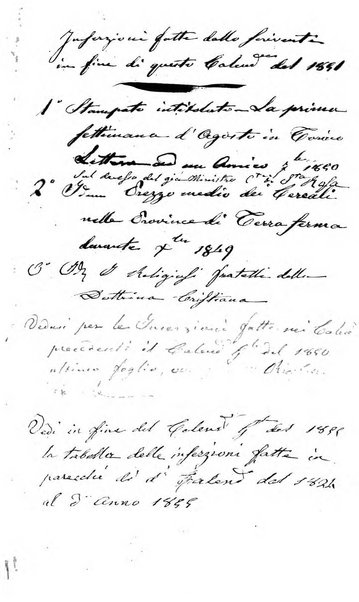 Inserzioni fatte dallo scrivente
in fine di questo Calend.º del 1851
1º Stampato intitolato - La prima
settimana d'Agosto in Torino
Lettera ad un Amico 7bre 1850
Sul decesso del già Ministro Cte di Sta Rosa
2º Idem Prezzo medio dei Cereali
nelle Provincie di Terra ferma
durante Xbre 1849
3º Id. I Religiosi fratelli della
Dottrina Cristiana
Vedansi per le Inserzioni fatte nei Calri
precedenti il Calend.º del 1850
ultimo foglio,
Vedi in fine del Calend.º Gle del 1855
la tabella delle inserzioni fatte in
parecchi di di Calend. dal 1824
al d.º Anno 1855